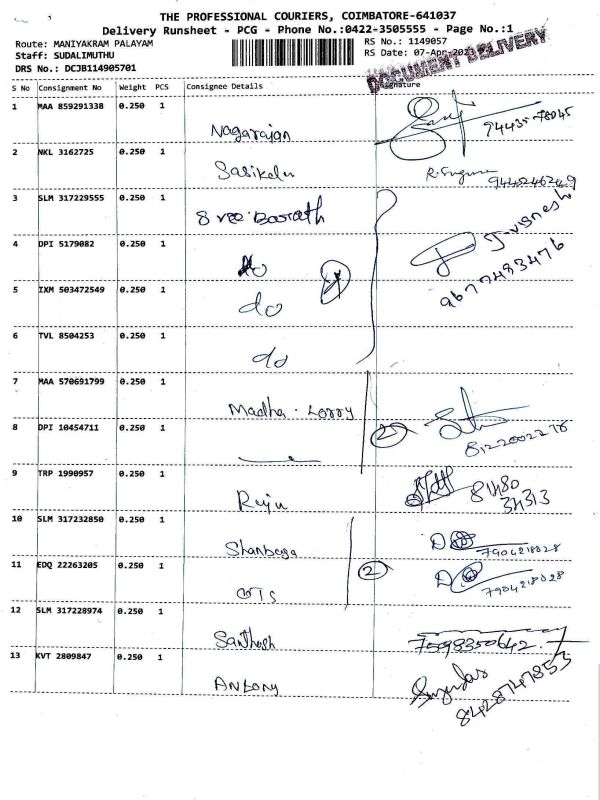 THE PROFESSIONAL COURIERS, COIMBATORE-641037
Delivery Runsheet - PCG - Phone No.:0422-3505555 - Page No.:1
Route: MANIYAKRAM PALAYAM
RS No.: 1149057
Staff: SUDALIMUTHU
RS Date: 07-Apr-2023
DOCUMENT DELIVERY
DRS No.: DCJB114905701
S No Consignment No Weight PCS Consignee Details Signature
1 MAA 859291338 0.250 1 Nagarajan 94435-78045
2 NKL 3162725 0.250 1 Sasikela
3 SLM 317229555 0.250 1 Sree Barath
4 DPI 5179082 0.250 1 do 9677483476
5 IXM 503472549 0.250 1 do
6 TVL 8504253 0.250 1 do
7 MAA 570691799 0.250 1 Madha. Lorry
8 DPI 10454711 0.250 1 2 8122002276
9 TRP 1990957 0.250 1 Raju 81480
34313
10 SLM 317232850 0.250 1 7904218028
11 EDQ 22263205 0.250 1 2 7904218028
12 SLM 317228974 0.250 1 Santhosh 7598350642
13 KVT 2809847 0.250 1 Antony 8428747853